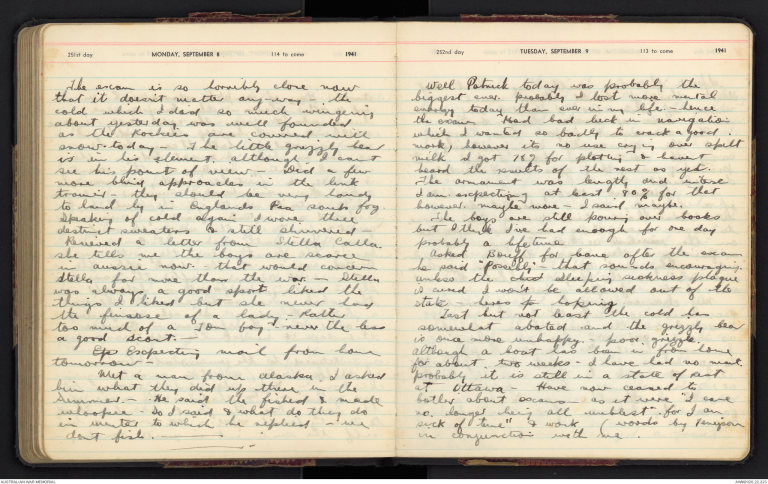 251st day MONDAY, SEPTEMBER 8 114 to come 1941
The exam is so horribly close now
that it doesn't matter any-way - the
cold which I did so much whinging
about yesterday was well founded
as the Rockies are covered with
snow to-day - The little grizzly bear
is in his element, although I can't
see his point of view - Did a few
more blind approaches in the link
trainer - they should be very handy
to land by in Englands Pea soup fog
Speaking of cold again I wore three
destinct sweaters & still shivered -
Received a letter from Stella Calla.
she tells me the boys are scarce
in aussie now. that would concern
Stella far more than the war - Stella
was always a good sport liked the
things I liked but she never had
the finesse of a lady - Rather
too much of a "Tom boy" never the less
a good scout. -
Expecting mail from home
tomorrow
Met a man from alaska, I asked
him what they did up there in the
Summer. - He said they fished & made
whoopee - So I said & what do they do
in winter to which he replied - we
don't fish.
252nd day TUESDAY, SEPTEMBER 9 113 to come 1941
Well Patrick today was probably the
biggest ever. probably I lost more mental
energy today than ever in my life. - hence
the exam. Had bad luck in navigation
which I wanted so badly to crack a good
mark, however its no use crying over spilt
milk I got 78% for plotting & havent
heard the results of the rest as yet.
The armament was lengthy and intense
I am expecting at least 80% for that
however. maybe more - I said maybe.
The boys are still poring over books
but I think I've had enough for one day
probably a lifetime
Asked for leave after the exam
he said "Possibly" that sounds encouraging.
unless the sleeping sickness plague
is cured I won't be allowed out of the
state - heres to hoping
Last but not least the cold has
somewhat abated and the grizzly bear
is once more unhappy - poor grizzle.
although a boat has been in from home
for about two weeks I have had no mail
probably it is still in a state of rest
at Ottawa - Have now ceased to
bother about exams - as it were "I care
no longer being all unblest" for I am
sick of time" & work (words by Tennyson
in conjunction with me.
AUSTRALIAN WAR MEMORIAL